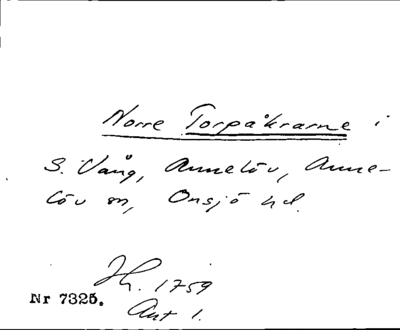 Norre Torpåkrarne i
S. Vång, Annelöv, Anne-
löv sn, Onsjö hd.
Ht. 1759
Nr 7325.
Akt 1.